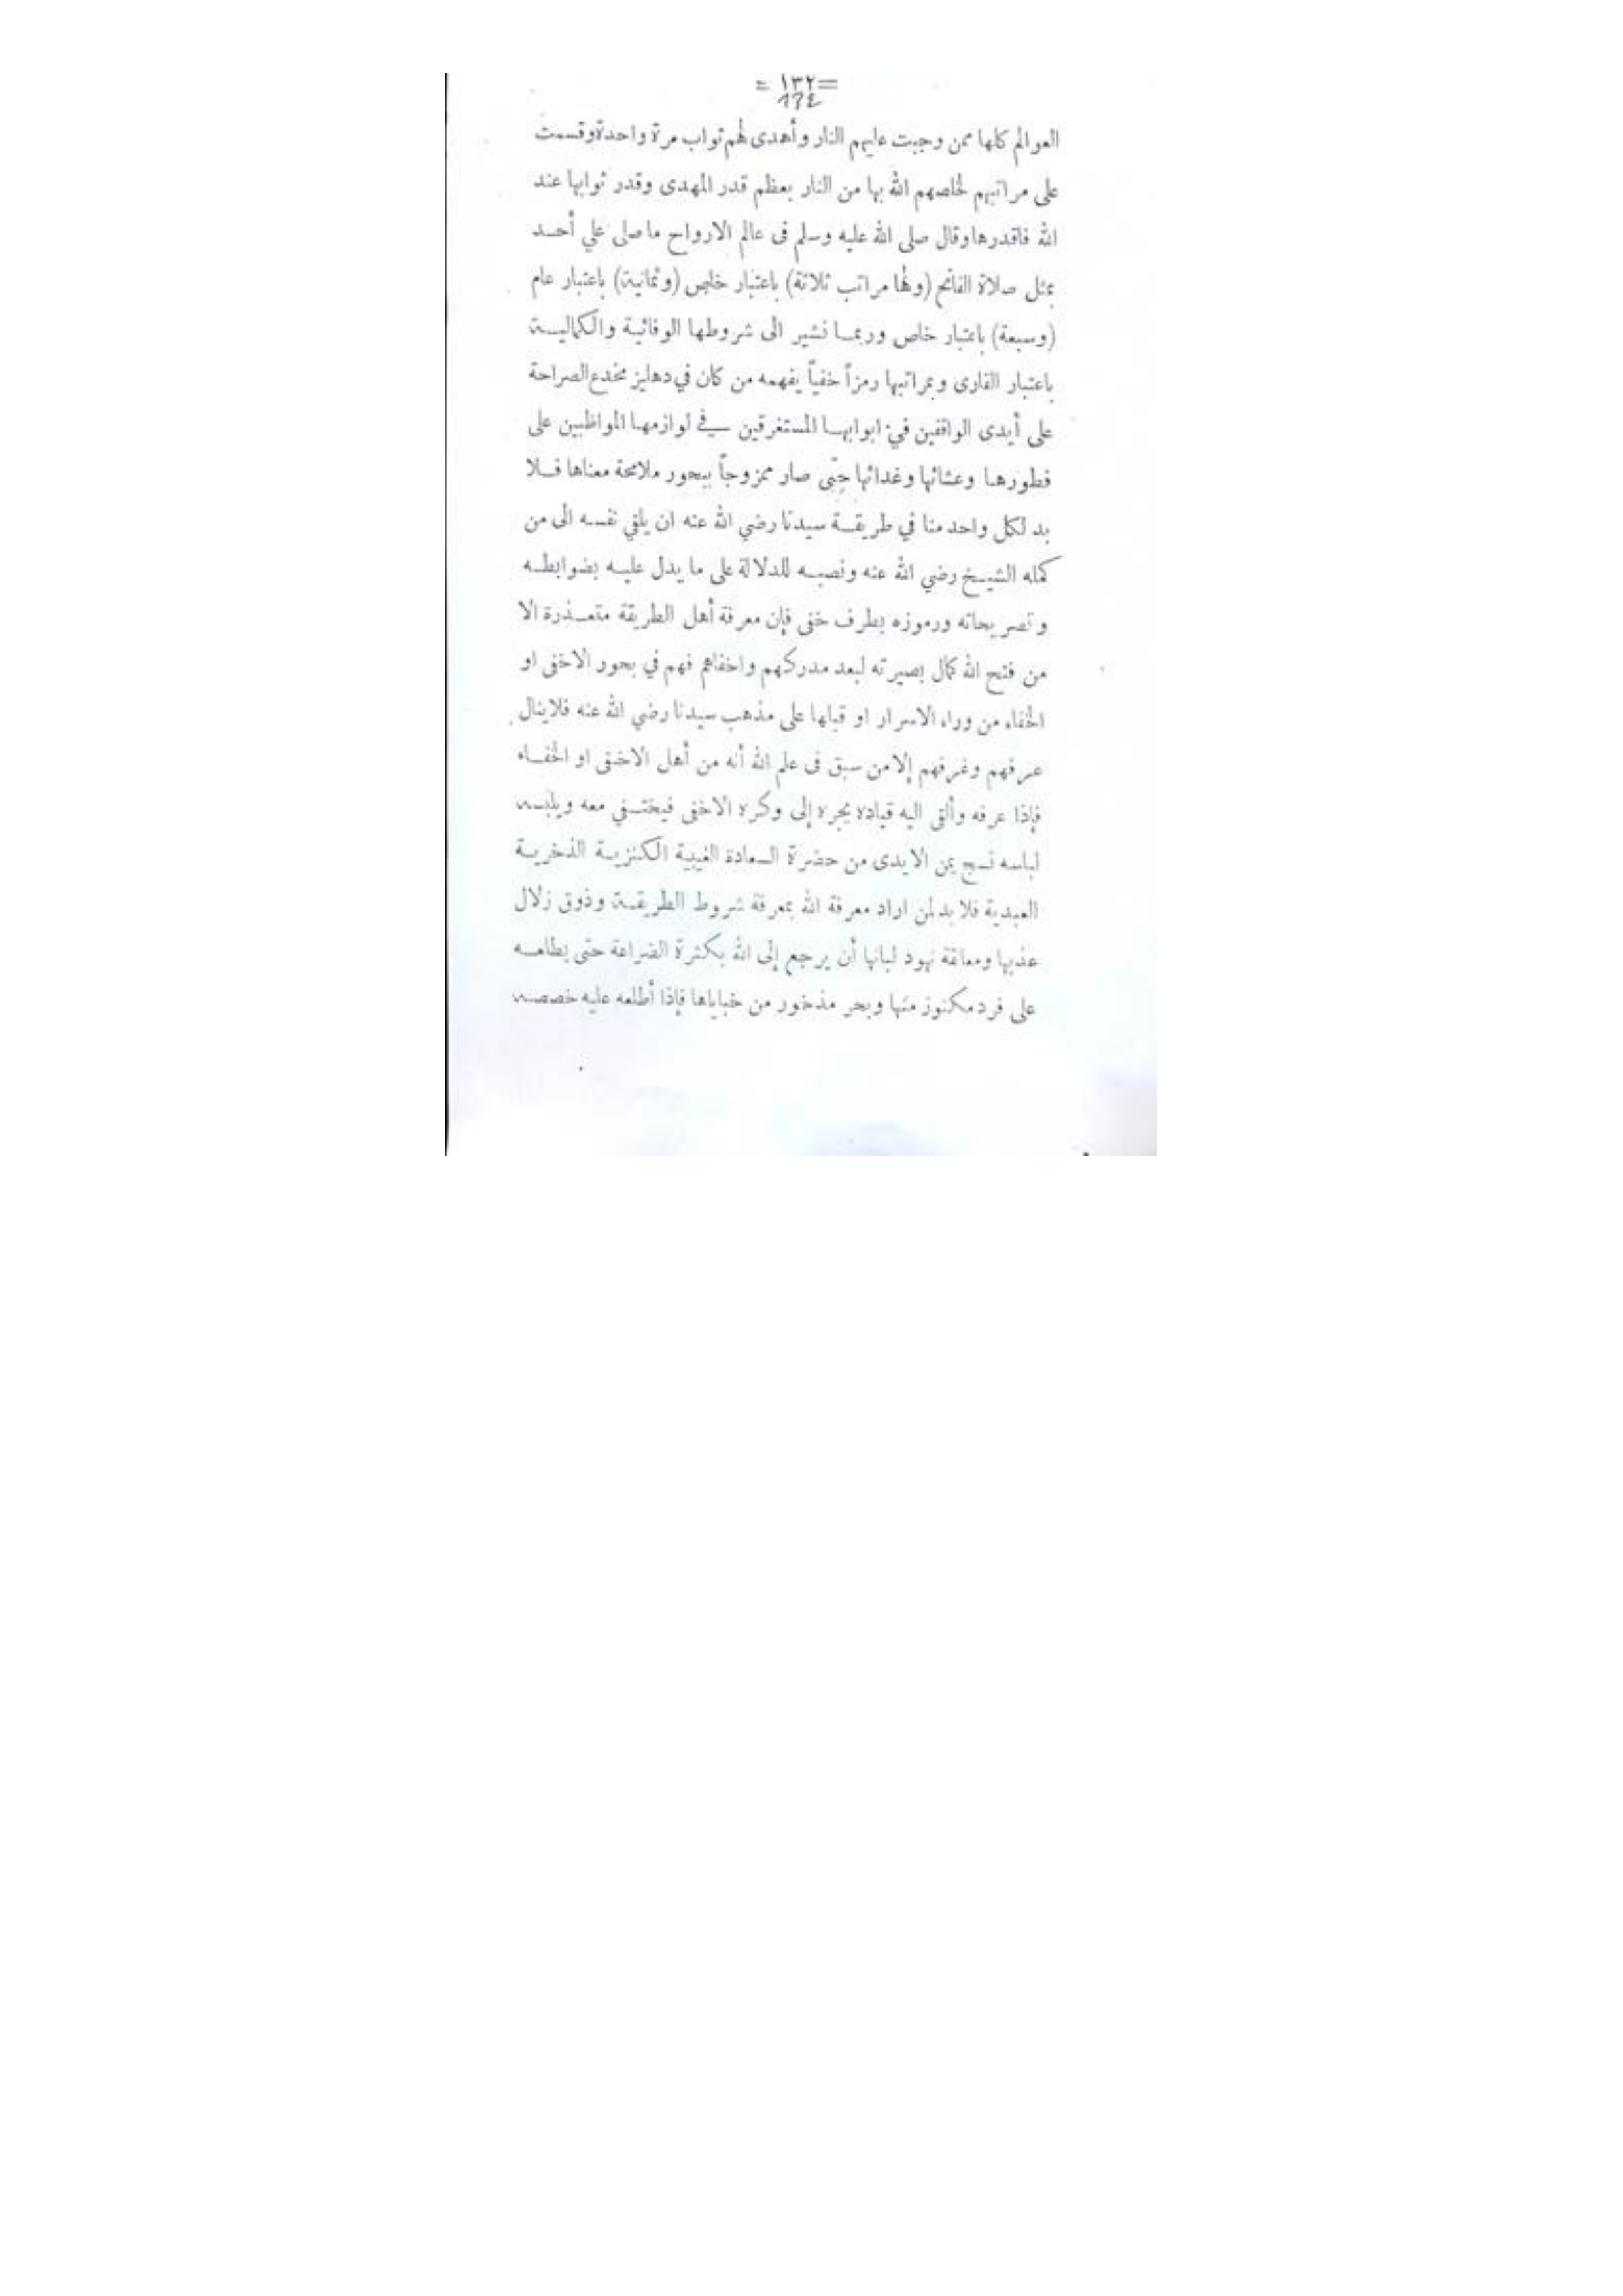 =١٣٢=
132
العوالم كلها ممن وجبت عليهم النار وأهدى لهم ثواب مرة واحدة وقسمت
على مراتبهم لخلصهم الله بها من النار بعظم قدر المهدى وقدر ثوابها عند
الله فاقدرها وقال صلى الله عليه وسلم فى عالم الارواح ما صلى علي أحد
بمثل صلاة الفاتح (ولها مراتب ثلاثة) باعتبار خاص (وثمانية) باعتبار عام
(وسبعة) باعتبار خاص وربما نشير الى شروطها الوفائية والكمالية
باعتبار القارى ومراتبها رمزاً خفياً يفهمه من كان في دهليز مخدع الصراحة
على أيدى الواقفين في ابوابها المستغرقين في لوازمها المواظبين على
فطورها وعشائها وغدائها حتى صار ممزوجاً ببحور ملامحة معناها فلا
بد لكل واحد منا في طريقة سيدنا رضي الله عنه ان يلقي نفسه الى من
كمله الشيخ رضي الله عنه ونصبه للدلالة على ما يدل عليه بضوابطه
وتصريحاته ورموزه بطرف خفى فإن معرفة أهل الطريقة متعذرة الا
من فتح الله كمال بصيرته لبعد مدركهم واخفاهم فهم في بحور الاخفى او
الخفاء من وراء الاسرار او قبلها على مذهب سيدنا رضي الله عنه فلا ينال
عرفهم وغرفهم إلا من سبق فى علم الله أنه من أهل الاخفى او الخفاء
فإذا عرفه وألقى اليه قياده يجره إلى وكره الاخفى فيختفي معه ويلبسه
لباسه نسج يمن الايدى من حضرة السعادة الغيبية الكنزية الذخرية
العبدية فلا بد لمن اراد معرفة الله بمعرفة شروط الطريقة وذوق زلال
عذبها ومعانقة نهود لبانها أن يرجع إلى الله بكثرة الضراعة حتى يطلعه
على فرد مكنوز منها وبحر مذخور من خباياها فإذا أطلعه عليه خصصه